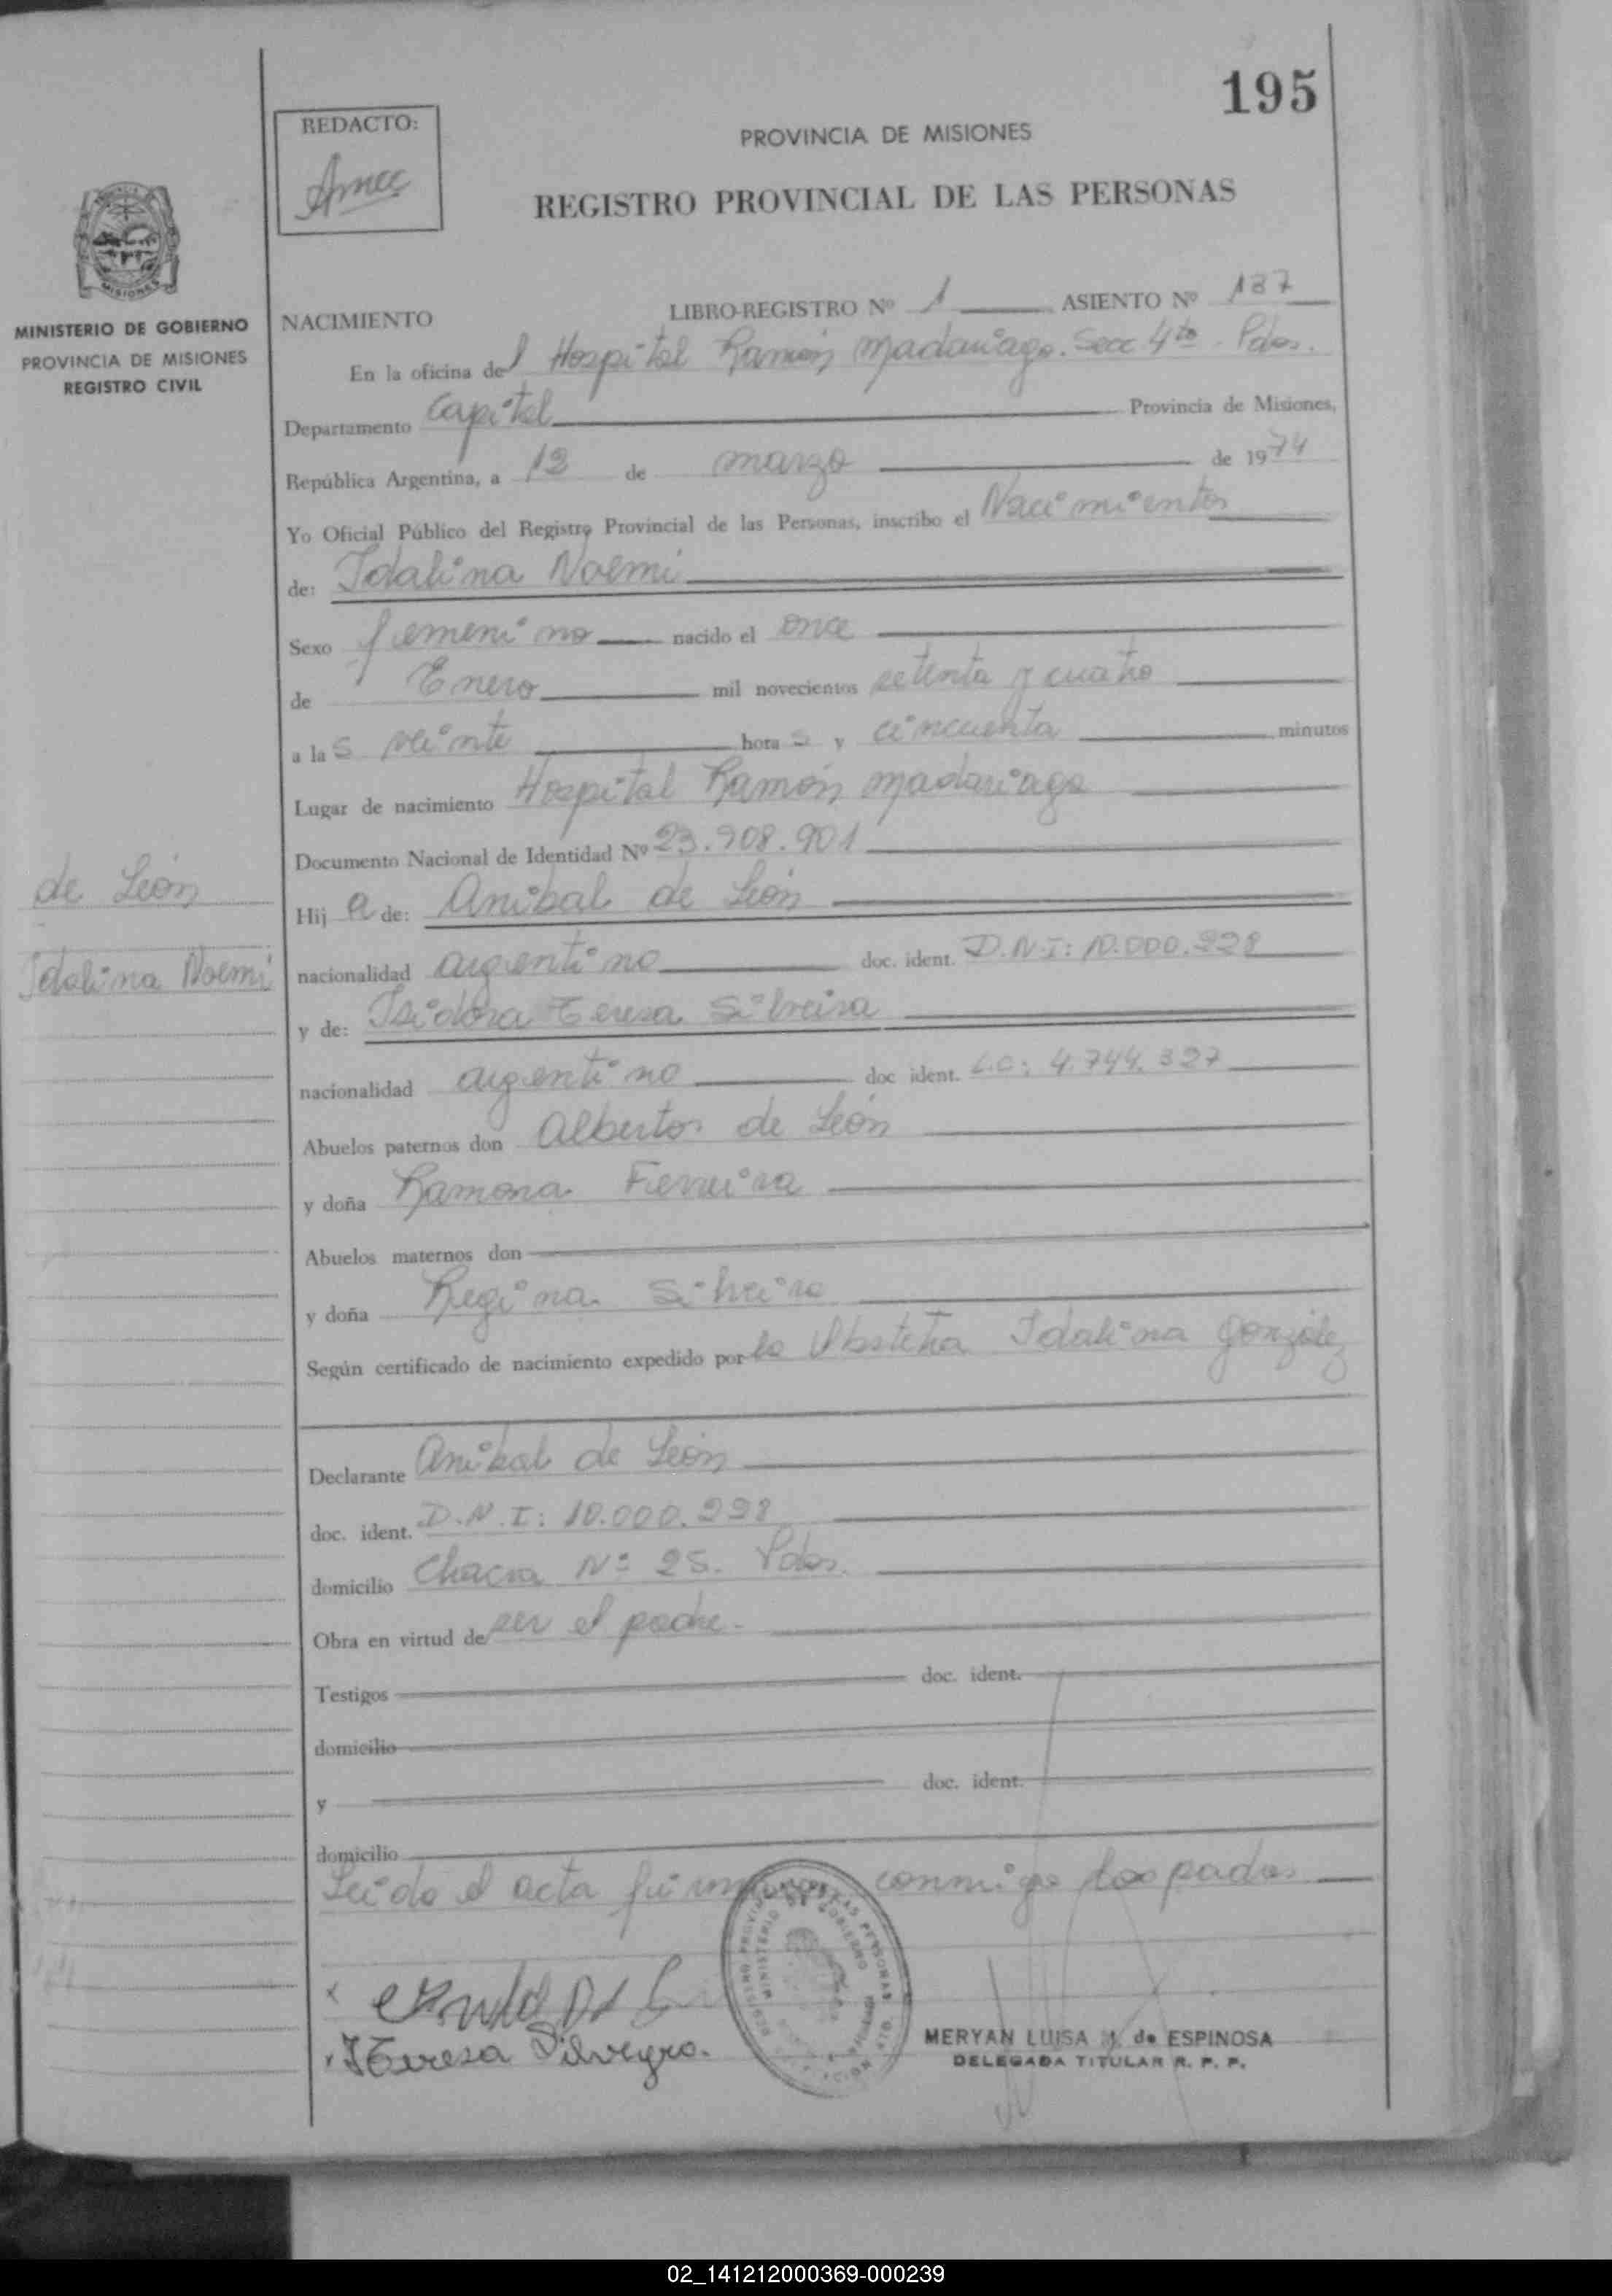 195
REDACTO:
PROVINCIA DE MISIONES
REGISTRO PROVINCIAL DE LAS PERSONAS
MISIONES
MINISTERIO DE GOBIERNO
PROVINCIA DE MISIONES
REGISTRO CIVIL
NACIMIENTO LIBRO-REGISTRO Nº 1 ASIENTO Nº 137
En la oficina del Hospital Ramón Madariaga. Secc 4ta - Pdas.
Departamento Capital Provincia de Misiones,
República Argentina, a 12 de marzo de 1974
Yo Oficial Público del Registro Provincial de las Personas, inscribo el Nacimiento
de: Idalina Noemi
Sexo femenino nacido el once
de Enero mil novecientos setenta y cuatro
a las veinte horas y cincuenta minutos
Lugar de nacimiento Hospital Ramón Madariaga
Documento Nacional de Identidad Nº 23.908.901
de León
Hija de: Anibal de León
Idalina Noemi
nacionalidad argentino doc. ident. D.N.I: 10.000.228
y de: Isidora Teresa Silveira
nacionalidad argentino doc ident. L.C: 4.744.327
Abuelos paternos don Alberto de León
y doña Ramona Ferreira
Abuelos maternos don
y doña Regina Silveira
Según certificado de nacimiento expedido por la Obstetra Idalina González
Declarante Anibal de León
doc. ident. D.N.I: 10.000.228
domicilio Chacra Nº 25. Pdas.
Obra en virtud de ser el padre.
Testigos doc. ident.
domicilio
y doc. ident.
domicilio
Leido el acta firman conmigo los padres
ITeresa Silveyra.
MERYAN LUISA de ESPINOSA
DELEGADA TITULAR R. P. P.
02_141212000369-000239